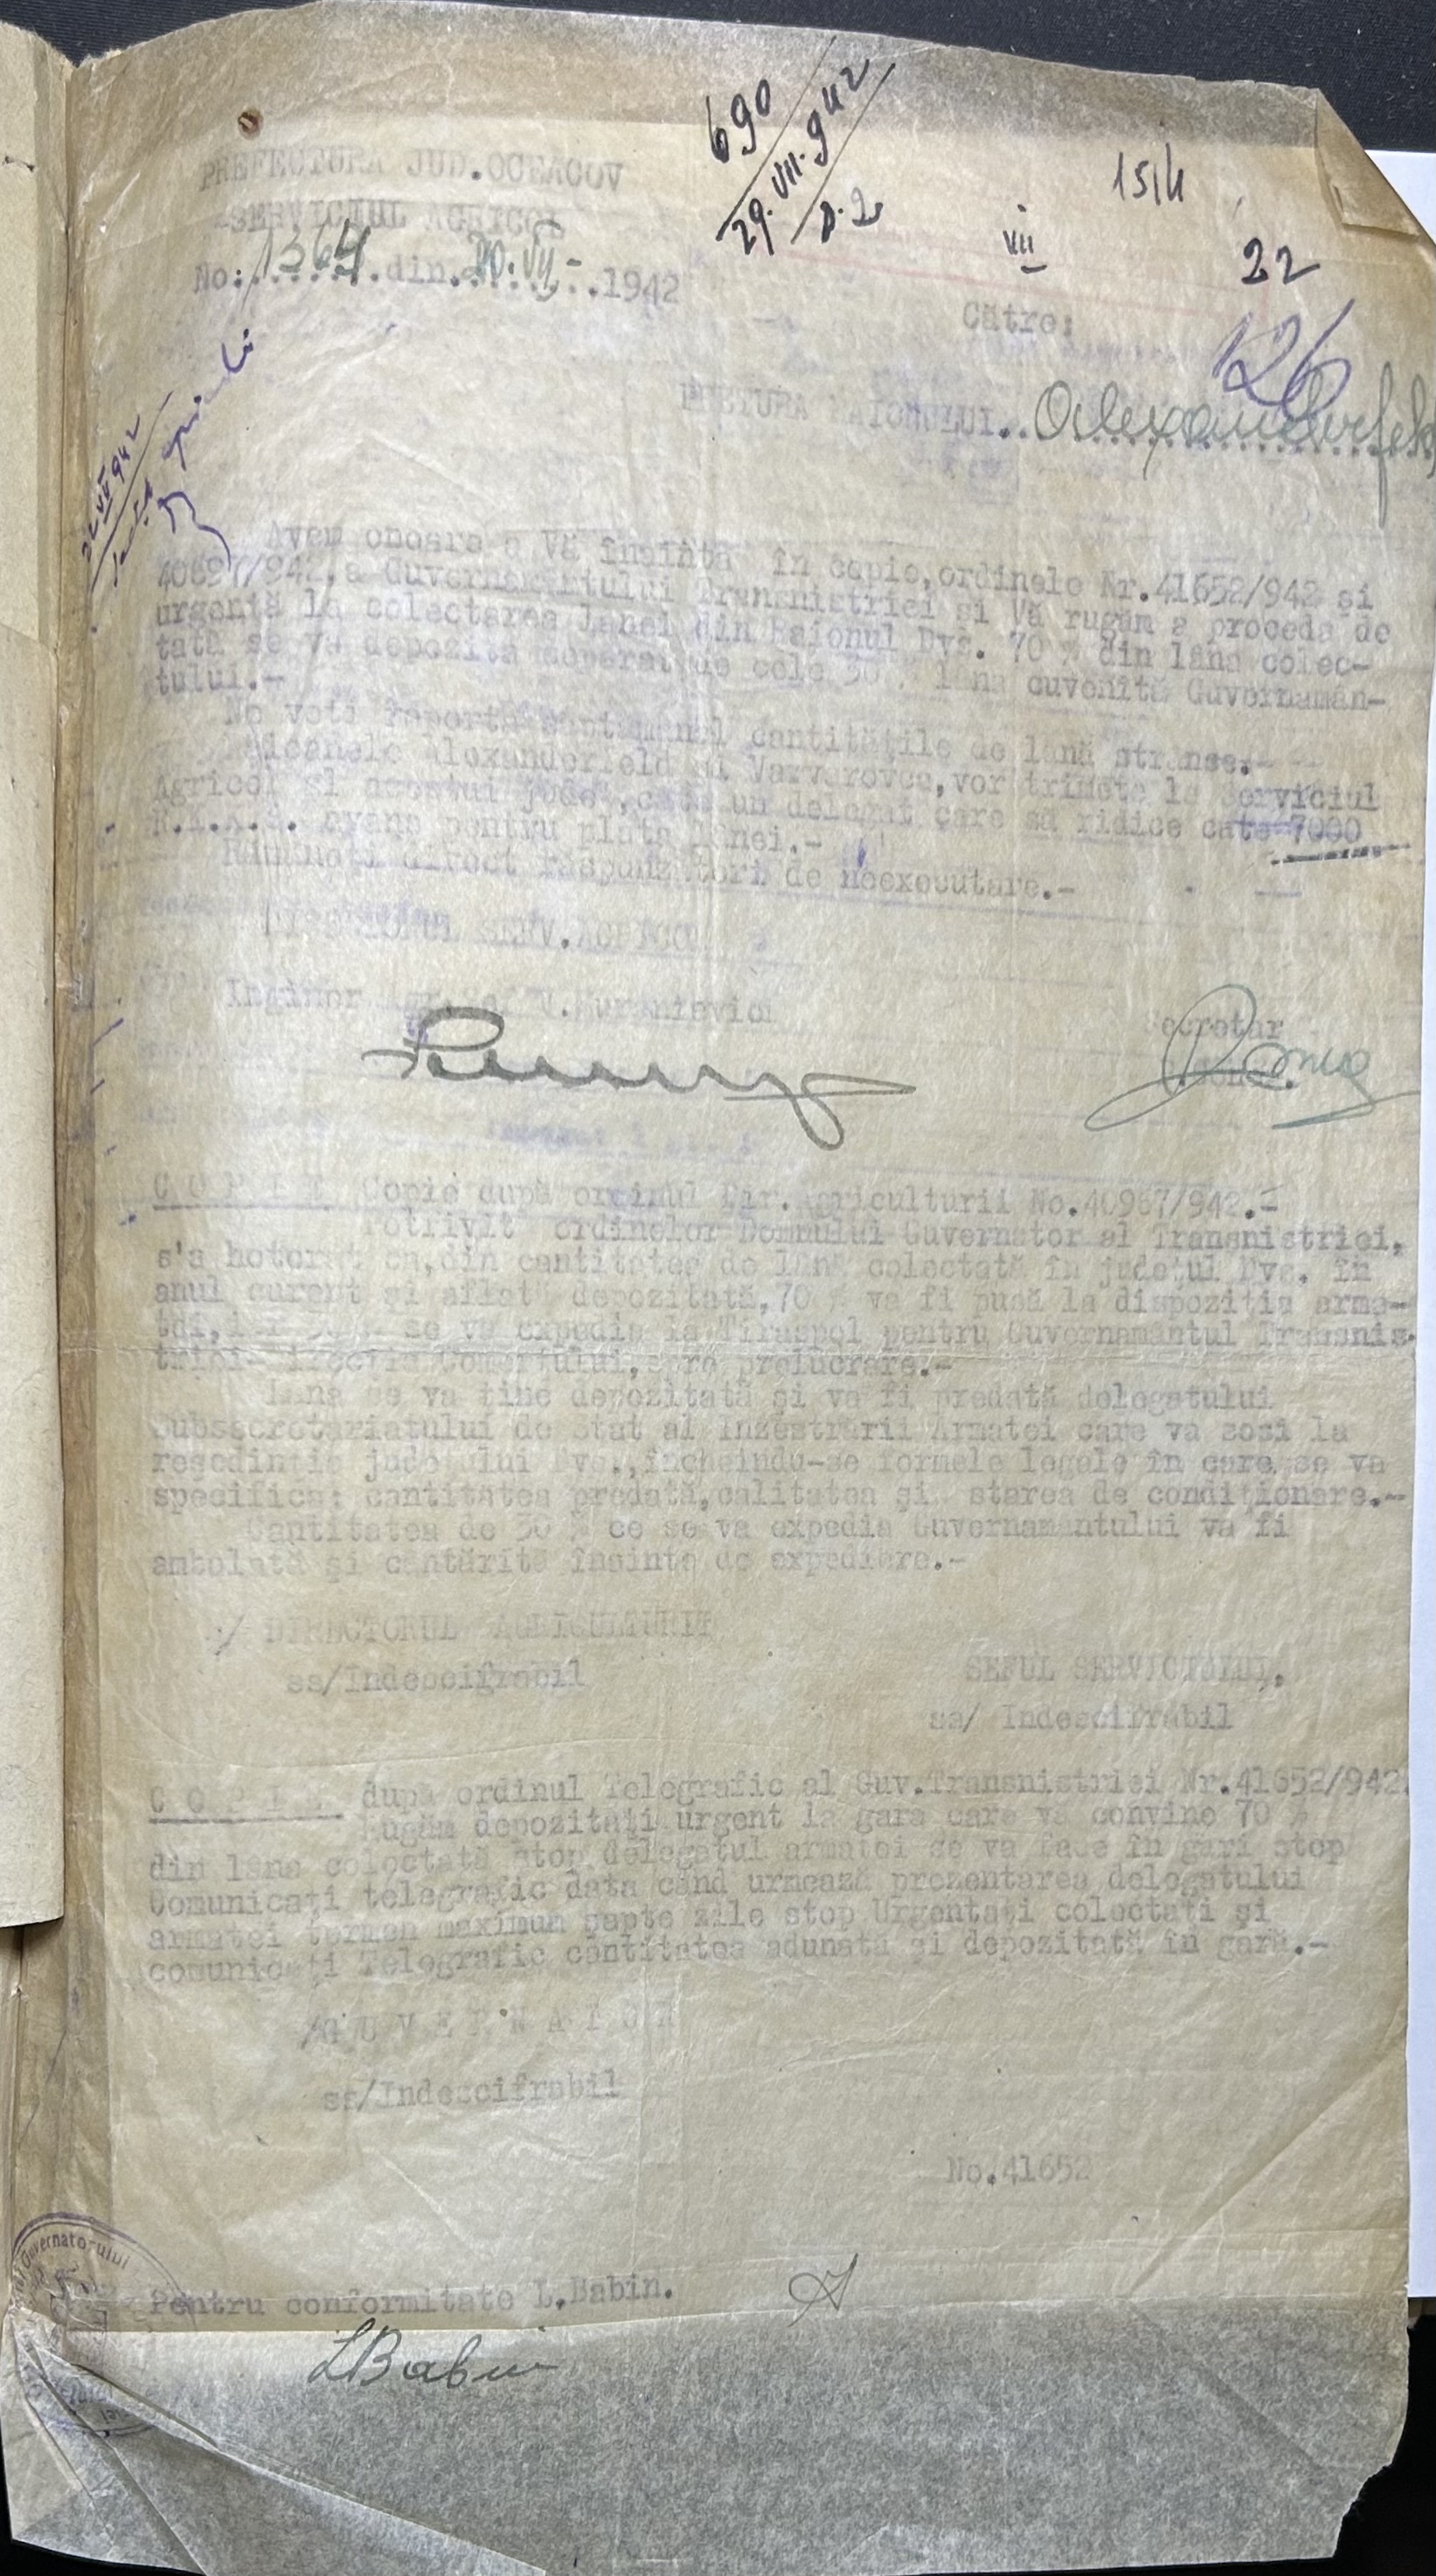 690
29.VII.942
D.2
15H
VII
22
126
PREFECTURA JUD.OCEACOV
-SERVICIUL AGRICOL
No:.1364.din.20.VII-.1942
Către:
PRETURA RAIONULUI..Alexanderfeld
22 VII 942
Avem onoare a Vă înainta în copie,ordinele Nr.41652/942 și
/942,a Guvernamântului Transnistriei și Vă rugăm a proceda de
urgență la colectarea lanei din Raionul Dvs. 70 % din lâna colec-
tată se va depozita separat de cele 30 % lâna cuvenită Guvernamân-
tului.-
Ne veți raporta săptămânal cantitățile de lână strânse.-
Raioanele Alexanderfeld și Varvarovca,vor trimete la Serviciul
Agricol al acestui județ,câte un delegat care să ridice câte 7000
R.K.K.S. avans pentru plata lânei.-
Rămâneți direct răspunzători de neexecutare.-
DIRECTORUL SERV.AGRICOL
Inginer
Secretar
C O P I E Copie după ordinul Dir.Agriculturii No.40967/942.-
Potrivit ordinelor Domnului Guvernator al Transnistriei,
s'a hotorat ca,din cantitatea de lână colectată în județul Dvs. în
anul curent și aflată depozitată,70 % va fi pusă la dispoziția arma-
tei,iar 30 % se va expedia la Tiraspol pentru Guvernamântul Transnis-
triei- Direcția Comerțului,spre prelucrare.-
Lâna se va ține depozitată și va fi predată delegatului
Subsecretariatului de Stat al Inzestrării Armatei care va sosi la
reședința județului Dvs.,încheindu-se formele legale în care se va
specifica: cantitatea predată,calitatea și starea de condiționare.-
Cantitatea de 30 % ce se va expedia Guvernamantului va fi
ambalată și cântărită înainte de expediere.-
/ DIRECTORUL AGRICULTURII
ss/Indescifrabil
SEFUL SERVICIULUI,
ss/ Indescifrabil
C O P I E după ordinul Telegrafic al Guv.Transnistriei Nr.41652/942.
Rugăm depozitați urgent la gara care vă convine 70 %
din lâna colectată stop delegatul armatei se va face în gări stop
Comunicați telegrafic data când urmează prezentarea delegatului
armatei termen maximum șapte zile stop Urgentați colectați și
comunicați Telegrafic cantitatea adunată și depozitată în gară.-
/G U V E R N A T O R
ss/Indescifrabil
No.41652
Guvernatorului
Pentru conformitate L.Babin.
LBabin